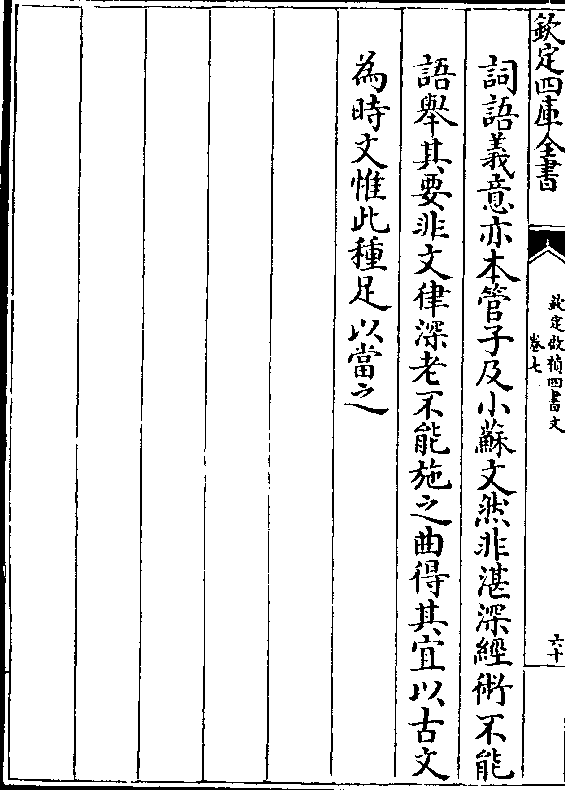 欽定四庫全書
欽定啟禎四書文
卷七
六十
詞語義意亦本管子及小蘇文然非湛深經術不能
語舉其要非文律深老不能施之曲得其宜以古文
為時文惟此種足以當之